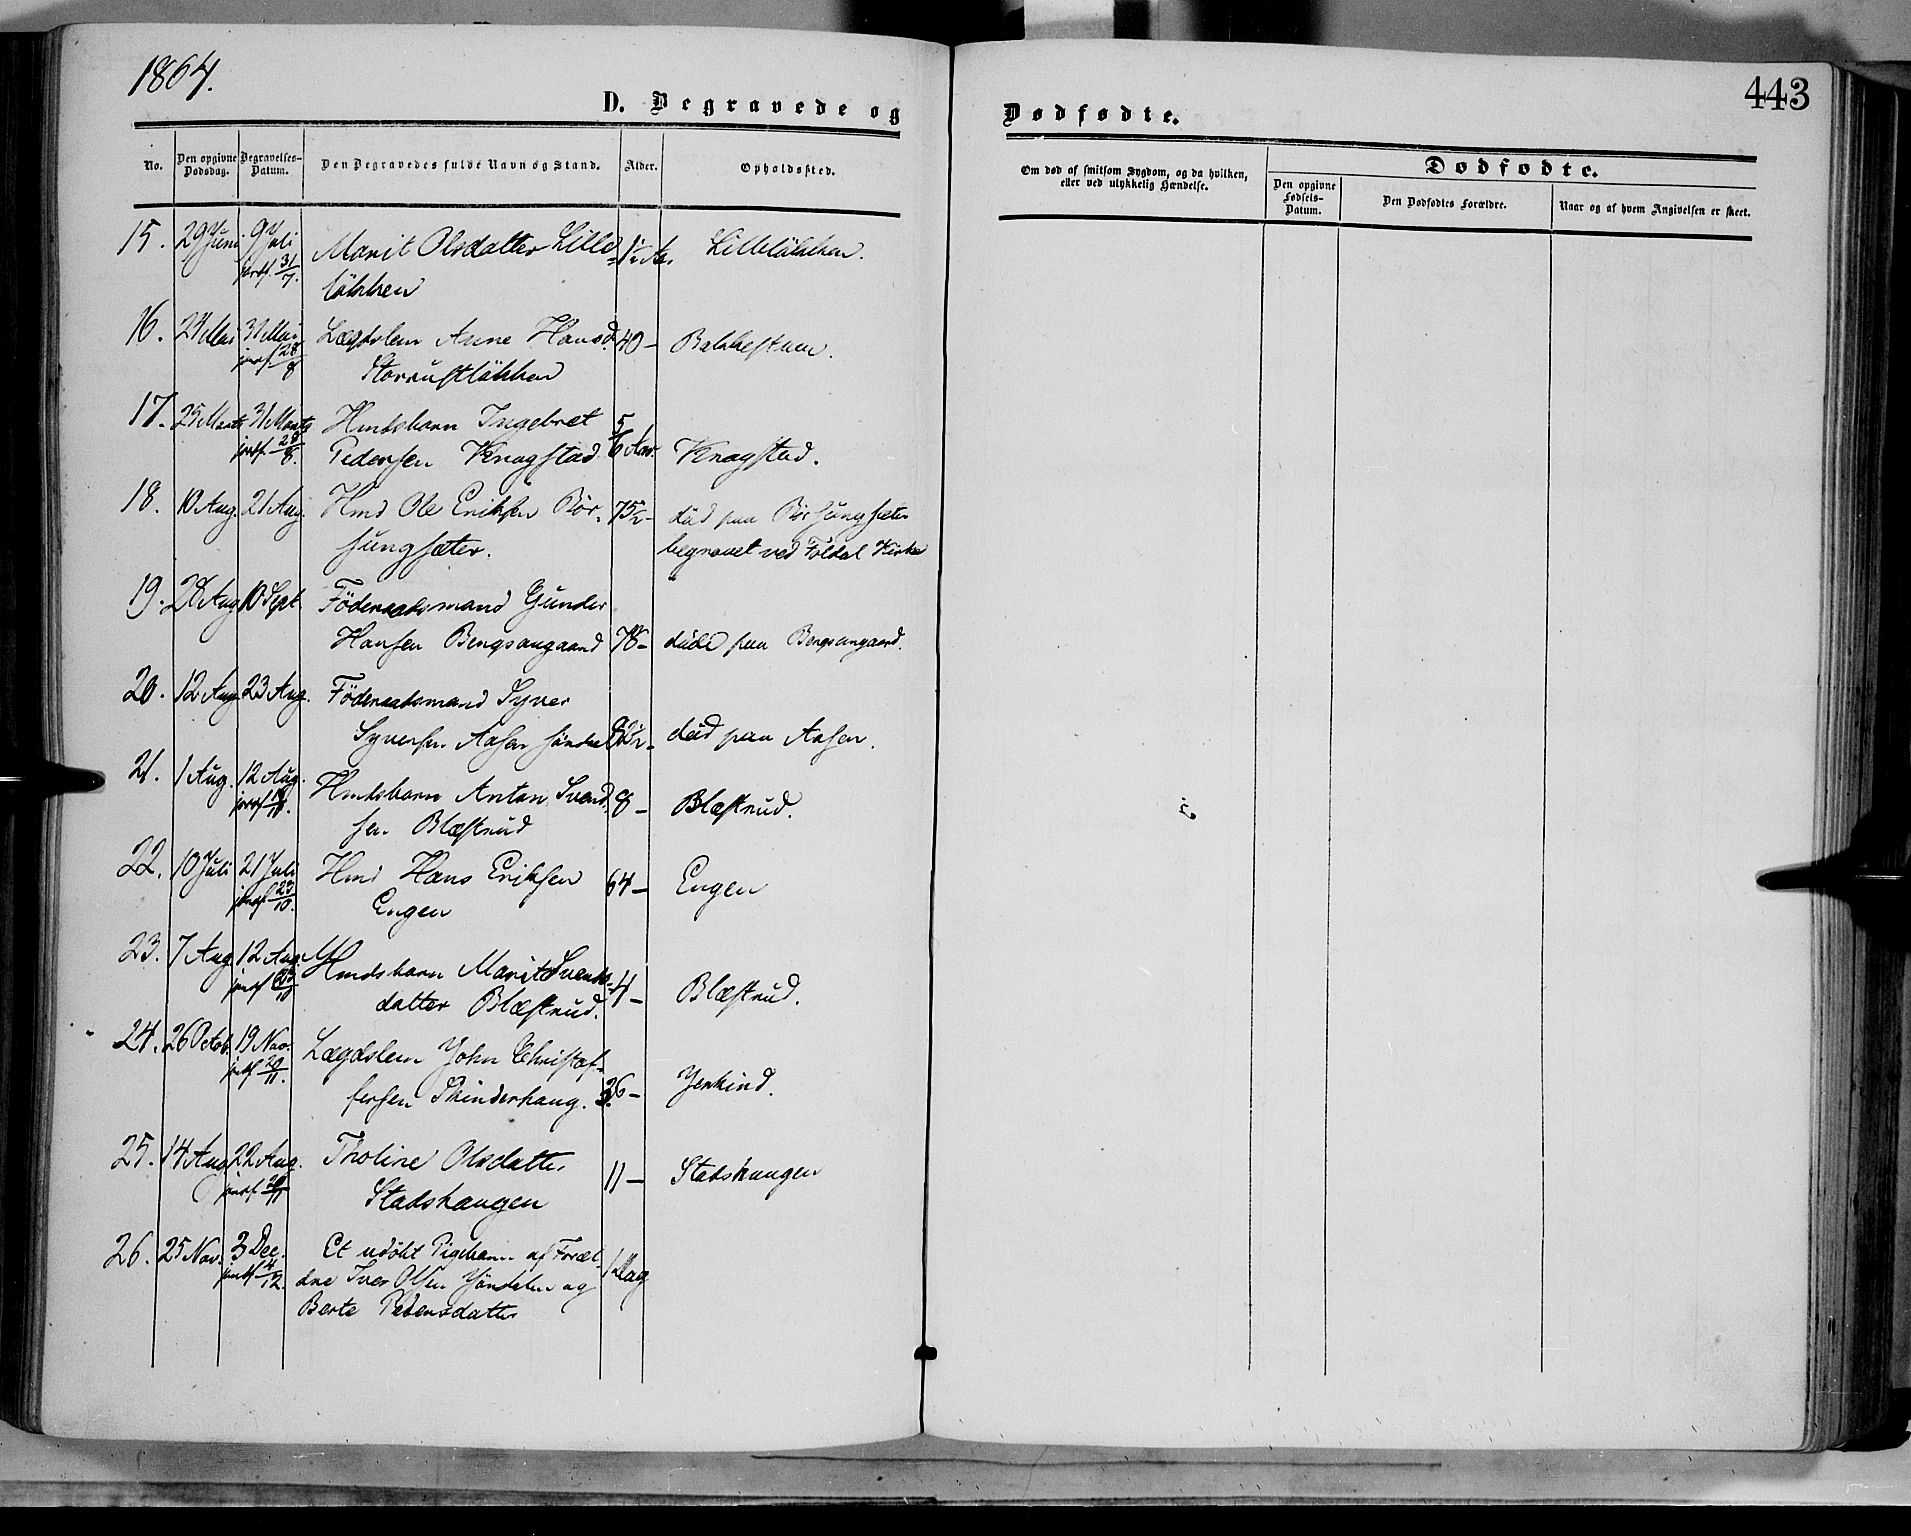 1864.
443
D. Begravede og
Dødfødte.
No.
Den opgivne Dødsdag.
Begravelses-Datum.
Den Begravedes fulde Navn og Stand.
Alder.
Opholdssted.
Om død af smitsom Sygdom, og da hvilken,
eller ved ulykkelig Hændelse.
Dødfødte.
Den opgivne Fødsels-Datum.
Den Dødfødtes Forældre.
Naar og af hvem Angivelsen er skeet.
15. 29 Juni 9 Juli Marit Olsdatter Lille= 1½ Aar Lillelökken.
jordf. 31/7. lökken
16. 24 Mai 31 Mai Lægdslem Anne Hansd. 40 – Bakkestuen.
jordf. 28/8 Storrustlökken
17. 25 Marts 31 Marts Hmdsbarn Ingebret
jordf. 28/8. Pedersen Kragstad 5/6 Aar. Kragstad.
18. 10 Aug. 21 Aug. Hmd Ole Eriksen Bör- 75½ – död paa Börsungsæter
sungsæter. begravet ved Foldal Kirke
19. 28 Aug 10 Sept. Föderaadsmand Gunder
Hansen Bengsangaard 78 – döde paa Bengsangaard.
20. 12 Aug 23 Aug. Föderaadsmand Syver
Syversen Aasen söndre död paa Aasen.
21. 1 Aug. 12 Aug. Hmdsbarn Anton Svend- 8 – Blæstrud.
jordf. sen Blæstrud
22. 10 Juli 21 Juli Hmd Hans Eriksen 64 – Engen
jordf 23/10. Engen
23. 7 Aug 12 Aug. Hmdsbarn Marit Svends- 4 – Blæstrud.
jordf datter Blæstrud.
24. 26 Octob. 19 Nov. Lægdslem John Christof-
jordf 20/11. fersen Skinderhaug. 36 – Jerkind.
25. 14 Aug 22 Aug. Tholine Olsdatter 11 – Stadshaugen
jordf. 20/11 Stadshaugen
26. 25 Nov. 3 Dec. Et udöbt Pigebarn af Foræl- 1 Dag
jordf 4/12. dre Iver Olsen Jöndalen og
Berte Pedersdatter